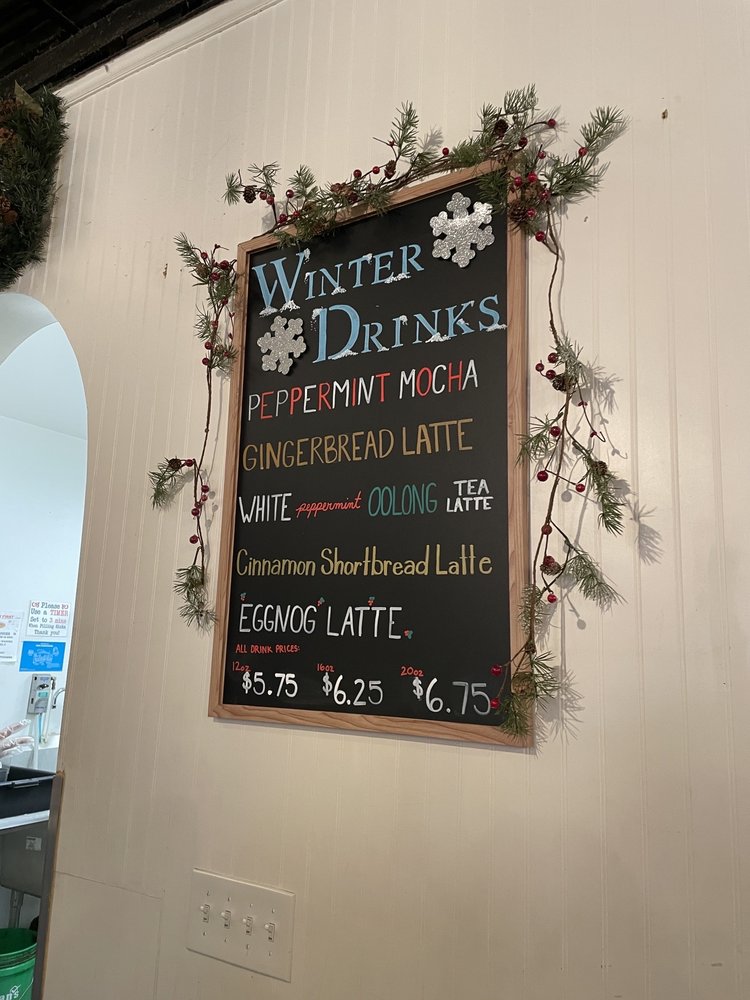 WINTER
DRINKS
PEPPERMINT MOCHA
GINGERBREAD LATTE
WHITE peppermint OOLONG TEA LATTE
Cinnamon Shortbread Latte
EGGNOG LATTE
ALL DRINK PRICES:
12oz 16oz 20oz
$5.75 $6.25 $6.75
Please
Use a TIMER
Set to 3 mins
When Filling Sinks
Thank You